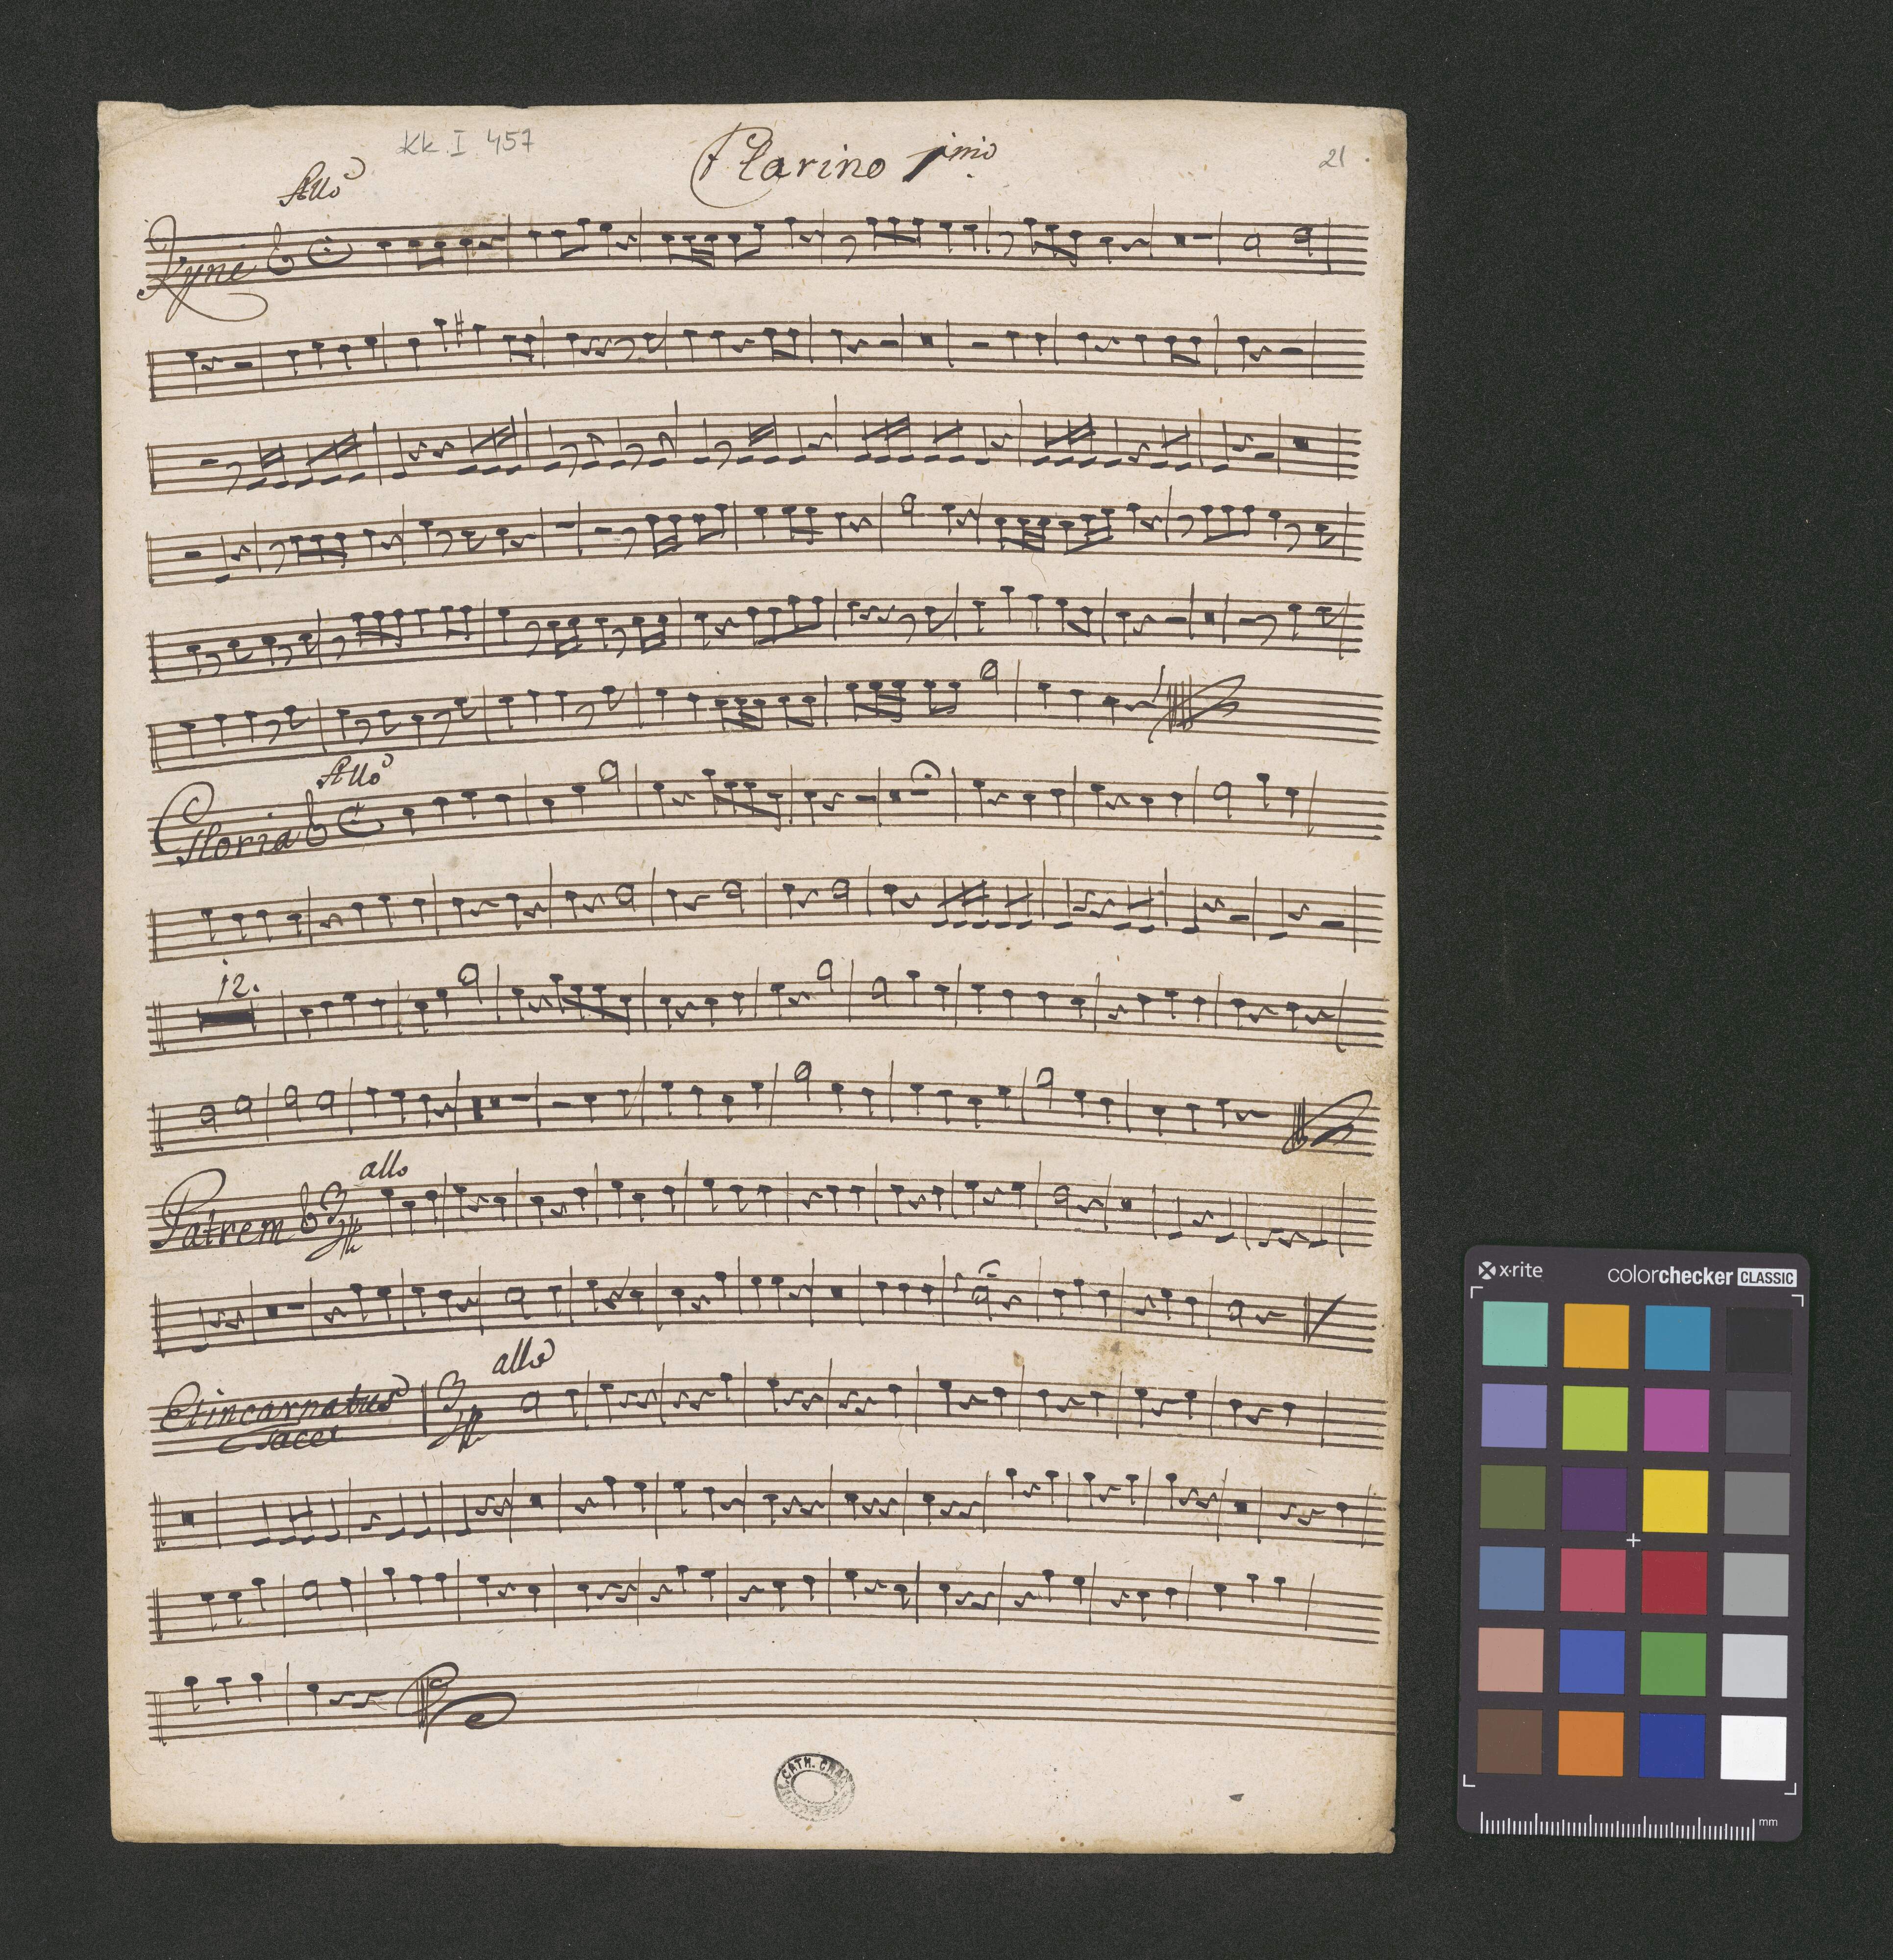 Kk. I 457
Clarino 1mo
21
Allo
Kyrie
Allo
Gloria
12.
allo
Patrem
allo
Et incarnatus
Tacet
CATH.
x·rite
colorchecker CLASSIC
mm